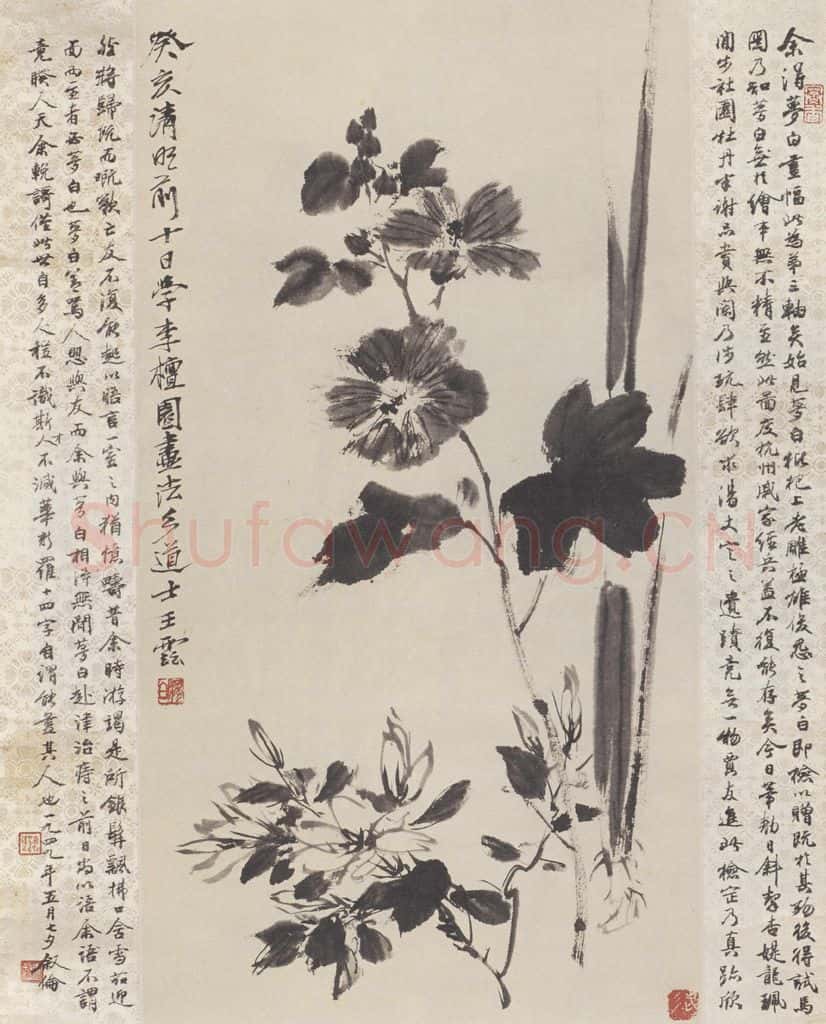 余得夢白畫幅此為弟三軸矣始見夢白枇杷上老雕極雄俊忍之夢白即檢以贈既於其歿後得試馬
圖乃知夢白於繪事無不精至然此兩度杭州家經共蓋不復能存矣今日日斜挈杏媞龍珮
閒步社園牡丹半謝品賞興闌乃涉玩肆欲求湯丈定之遺蹟竟無一物賣友進此檢定乃真跡欣
癸亥清明前十日學李檀園畫法彡道士王雲
然將歸既而嘅歎亡友不復能起以晤言一室之內猶憶疇昔余時游謁是所銀髯飄拂口含雪茄迎
面而至者必夢白也夢白善罵人恩與友而余與夢白相淬無閒夢白赴津治痔之前日尚以語余語不謂
竟睽人天余輓詩僅此世自多人從不識斯人才不減華新羅十四字自謂能盡其人也一九四九年五月七夕叙倫
Shufawang.CN